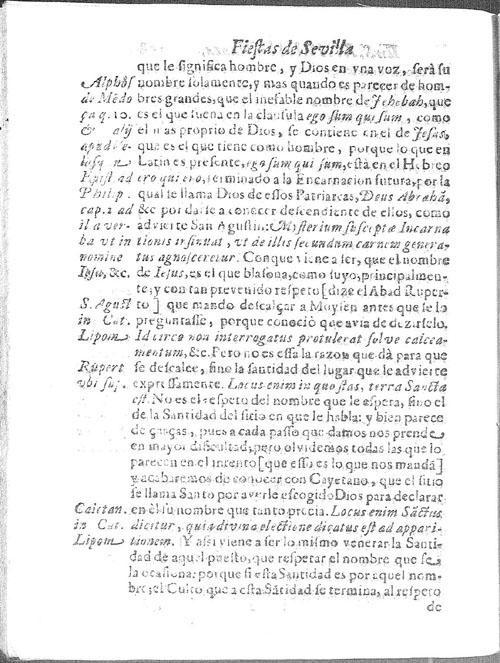 Fiestas de Sevilla
que le significa hombre, y Dios en vna voz, serà su
nombre solamente, y mas quando es parecer de hom-
bres grandes, que el inefable nombre de Jehobah, que
es el que suena en la clausula ego sum qui sum, como
el mas proprio de Dios, se contiene en el de Jesus,
que es el que tiene como hombre, porque lo que en
Latin es presente, ego sum qui sum, està en el Hebreo
ero qui ero, terminado a la Encarnacion futura, por la
qual se llama Dios de estos Patriarcas, Deus Abrahã,
&c por darse a conocer descendiente de ellos, como
advierte San Agustin: Mysterium susceptæ Incarna
tionis insinuat, vt de illis secundum carnem genera-
tus agnosceretur. Con que viene a ser, que el nombre
de Iesus, es el que blasona, como suyo, principalmen-
te; y con tan prevenido respeto [dize el Abad Ruper-
to] que mando descalçar a Moysen antes que se lo
preguntasse, porque conociò que avia de dezirselo.
Id circo non interrogatus protulerat solve calcea-
mentum, &c. Pero no es essa la razon que dà para que
se descalce, sino la santidad del lugar que le advierte
expressamente. Locus enim in quo stas, terra Sancta
est. No es el respeto del nombre que le espera, sino el
de la Santidad del sitio en que le habla: y bien parece
de çarças, pues a cada passo que damos nos prende
en mayor dificultad, pero olvidemos todas las que lo
parecen en el intento [que esso es lo que nos mandã]
y acabaremos de conocer con Cayetano, que el sitio
se llama Santo por averle escogido Dios para declarar
en èl su nombre que tanto precia. Locus enim Sãctus
dicitur, quia divino electione dicatus est ad appari-
tionem. Y assi viene a ser lo mismo venerar la Santi-
dad de aquel puesto, que respetar el nombre que se
la ocasiona: porque si esta Santidad es por aquel nom-
bre; el Culto que a esta Sãtidad se termina, al respeto
de
Alphõs
de Mẽdo
ça q. 10.
&
Epist ad
Philip.
cap. 2 ad
il a ver-
ba vt in
nomine
Iesu, &c.
S. Agust
in Cat.
Lipom
Rupert
vbi sup.
Caietan.
in Cat.
Lipom